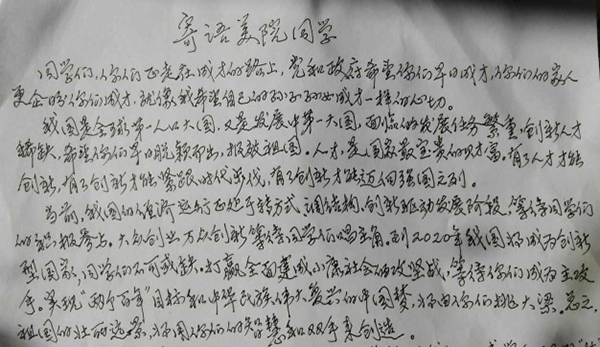 寄语美院同学
同学们,你们正走在成才的路上,党和政府希望你们早日成才,你们的家人
更企盼你们成才,就像我希望自己的孙子孙女成才一样的心切。
我国是全球第一人口大国,又是发展中第一大国,面临的发展任务繁重,创新人才
稀缺,希望你们早日脱颖而出,报效祖国。人才,是国家最宝贵的财富。有了人才才能
创新,有了创新才能紧跟时代步伐,有了创新才能迈向强国之列。
当前,我国的经济运行正处于转方式、调结构、创新驱动发展阶段,等待同学们
的积极参与。大众创业万众创新等待同学们唱主角。到2020年我国将成为创新
型国家,同学们不可或缺。打赢全面建成小康社会的攻坚战,等待你们成为主攻
手。实现"两个百年"目标和中华民族伟大复兴的中国梦,将由你们挑大梁。总之,
祖国的壮丽远景,将用你们的智慧和双手来创造。